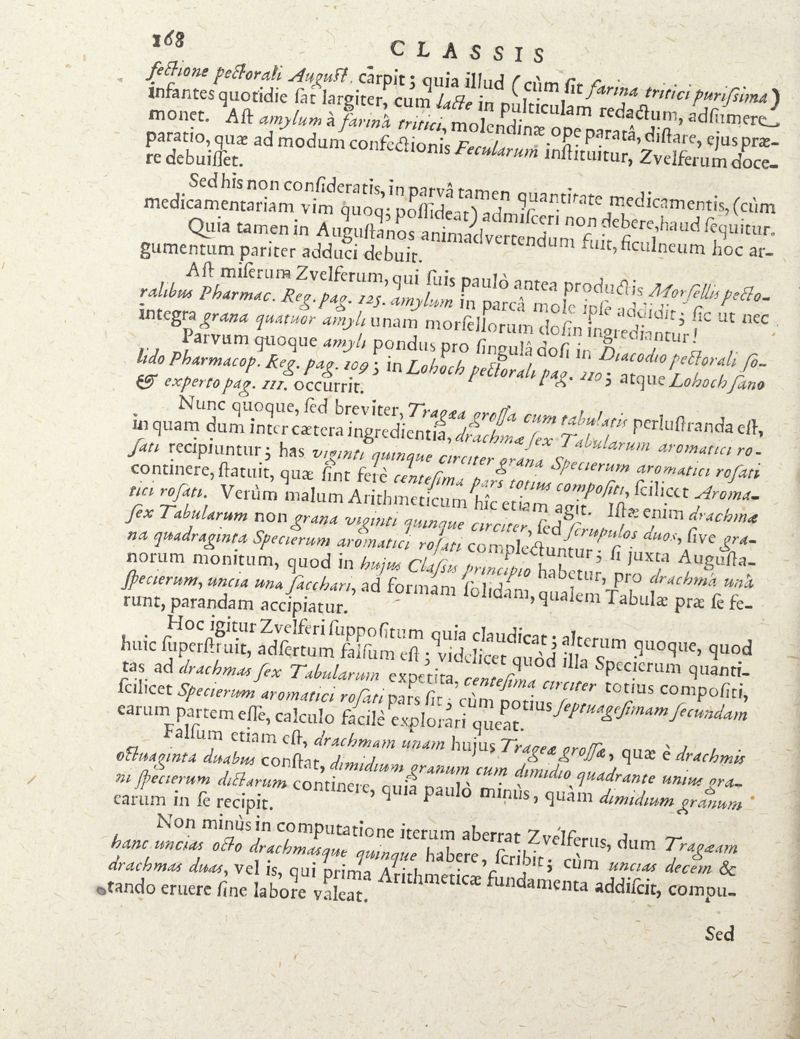 168
CLASSIS
fectione pectorali August. carpit; quia illud (cùm sit farina tritici purissima)
infantes quotidie sat largiter, cum lacte in pulticulam redactum, adsumere
monet. Ast amylum à farinâ tritici, molendinæ ope paratâ, distare, ejus præ-
paratio, quæ ad modum confectionis Fecularum instituitur, Zvelferum doce-
re debuisset.
Sed his non consideratis, in parvâ tamen quantitate medicamentis, (cùm
medicamentariam vim quoq; possideat) admisceri non debere, haud sequitur.
Quia tamen in Augustanos animadvertendum fuit, ficulneum hoc ar-
gumentum pariter adduci debuit.
Ast miserum Zvelferum, qui suis paulò antea productis Morsellis pecto-
ralibus Pharmac. Reg. pag. 125. amylum in parcâ mole ipse addidit; sic ut nec
integra grana quatuor amyli unam morsellorum dosin ingrediantur!
Parvum quoque amyli pondus pro singulâ dosi in Diacodio pectorali so-
lido Pharmacop. Reg. pag. 109; in Lohoch pectorali pag. 110; atque Lohoch sano
& experto pag. 111. occurrit.
Nunc quoque, sed breviter, Tragæa grossa cum tabulatis perlustranda est,
in quam dum inter cætera ingredientia, drachmæ sex Tabularum aromatici ro-
sati recipiuntur; has viginti quinque circiter grana Specierum aromatici rosati
continere, statuit, quæ sint ferè centesima pars totius compositi, scilicet Aroma-
tici rosati. Verùm malum Arithmeticum hic etiam agit. Istæ enim drachmæ
sex Tabularum non grana viginti quinque circiter, sed scrupulos duos, sive gra-
na quadraginta Specierum aromatici rosati complectuntur; si juxta Augusta-
norum monitum, quod in hujus Classis principio habetur, pro drachmâ unâ
specierum, uncia una sacchari, ad formam solidam, qualem Tabulæ præ se fe-
runt, parandam accipiatur.
Hoc igitur Zvelferi suppositum quia claudicat; alterum quoque, quod
huic superstruit, adsertum falsum est; videlicet quòd illa Specierum quanti-
tas ad drachmas sex Tabularum expetita, centesima circiter totius compositi,
scilicet Specierum aromatici rosati pars sit; cùm potius septuagesimam secundam
earum partem esse, calculo facilè explorari queat.
Falsum etiam est, drachmam unam hujus Trageæ grossæ, quæ è drachmis
octuaginta duabus constat, dimidium granum cum dimidio quadrante unius gra-
ni specierum dictarum continere, quia paulò minùs, quàm dimidium granum
earum in se recipit.
Non minùs in computatione iterum aberrat Zvelferus, dum Tragæam
hanc uncias octo drachmasque quinque habere, scribit; cùm uncias decem &
drachmas duas, vel is, qui prima Arithmeticæ fundamenta addiscit, compu-
tando eruere sine labore valeat.
Sed